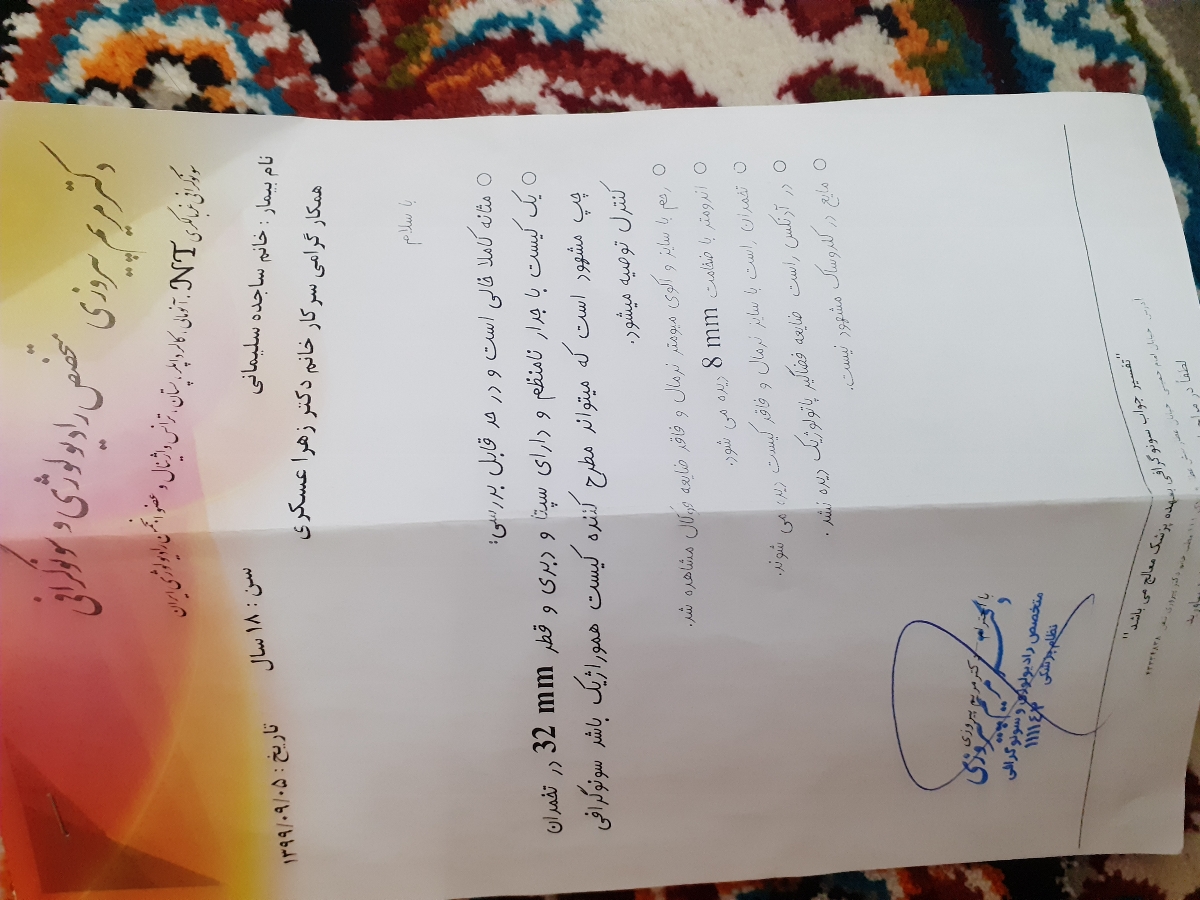 دکتر مریم پیروزی متخصص رادیولوژی و سونوگرافی
سونوگرافی غربالگری NT، آنومالی، کالر داپلر، پستان، ترانس واژینال و عضو انجمن رادیولوژی ایران
نام بیمار : خانم ساجده سلیمانی سن : ۱۸ سال تاریخ : ۱۳۹۹/۰۹/۰۵
همکار گرامی سرکار خانم دکتر زهرا عسکری
با سلام
○ مثانه کاملا خالی است و در حد قابل بررسی:
○ یک کیست با جدار نامنظم و دارای سپتا و دبری و قطر 32 mm در تخمدان
چپ مشهود است که میتواند مطرح کننده کیست هموراژیک باشد سونوگرافی
کنترل توصیه میشود.
○ رحم با سایز و اکوی میومتر نرمال و فاقد ضایعه فوکال مشاهده شد.
○ آندومتر با ضخامت 8 mm دیده می شود.
○ تخمدان راست با سایز نرمال و فاقد کیست دیده می شوند.
○ در آدنکس راست ضایعه فضاگیر پاتولوژیک دیده نشد.
○ مایع در کلدوساک مشهود نیست.
با احترام دکتر مریم پیروزی
دکتر مریم پیروزی
متخصص رادیولوژی و سونوگرافی
نظام پزشکی
۱۱۱۱۴۳
"تفسیر جواب سونوگرافی بعهده پزشک معالج می باشد"